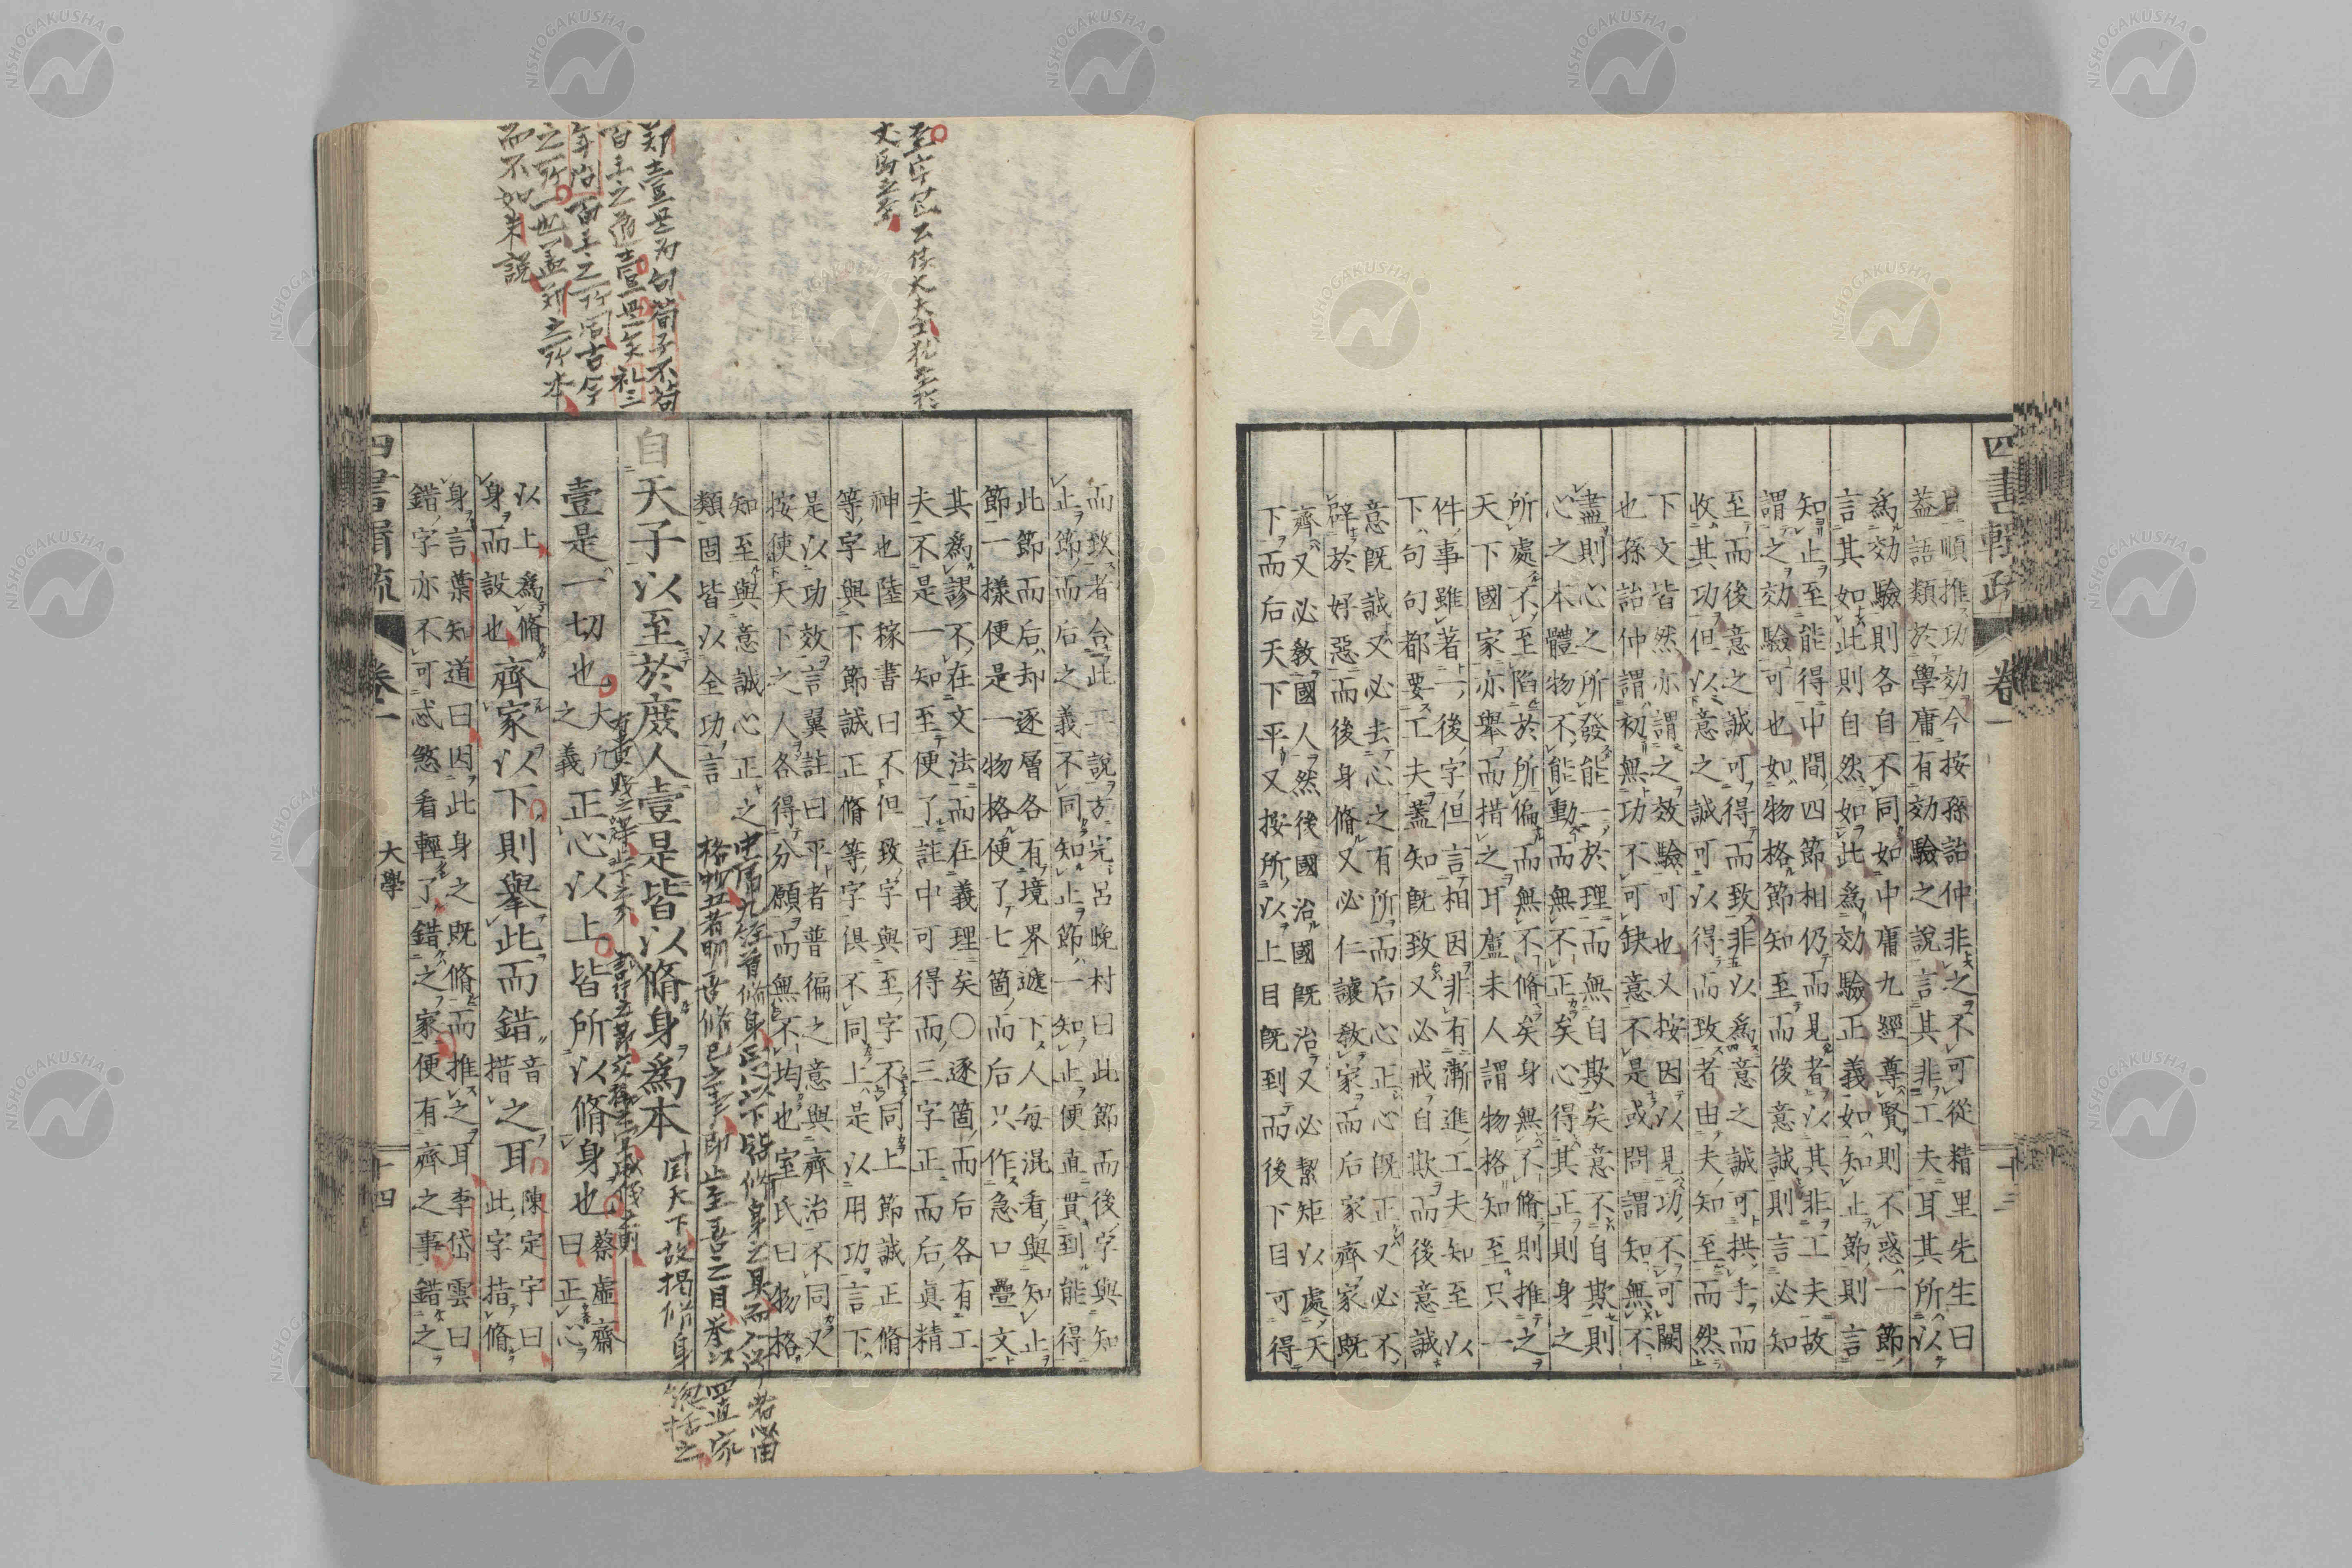 四書輯疏　卷一　十三
且順推功効今按孫詒仲非之不可從精里先生曰
蓋語類於學庸有効驗之說言其非工夫耳其所以
爲効驗則各自不同如中庸九經尊賢則不惑一節
言其如此則自然如此爲効驗正義如知止節則言
知止至能得中間四節相仍而見者以其非工夫故
謂之効驗可也如物格節知至而後意誠則言必知
至而後意之誠可得而致非以爲意之誠可拱手而
收其功但以意之誠可以得而致者由夫知至而然
下文皆然亦謂之效驗可也又按因以見功不可闕
也孫詒仲謂初無功不可缺意不是或問謂知無不
盡則心之所發能一於理而無自欺矣意不自欺則
心之本體物不能動而無不正矣心得其正則身之
所處不至陷於所偏而無不脩矣身無不脩則推之
天下國家亦舉而措之耳盧未人謂物格知至只一
件事雖著一後字但言相因非有漸進工夫知至以
下句句都要工夫蓋知既致又必戒自欺而後意誠
意既誠又必去心之有所而后心正心既正又必不
辟於好惡而後身脩又必仁讓敎家而后家齊家既
齊又必敎國人然後國治國既治又必絜矩以處天
下而后天下平又按所以上目既到而後下目可得
而致者合此二說方完呂晩村曰此節而後字與知
止節而后之義不同知止節一知止便直貫到能得
此節而后却逐層各有境界遞下人每混看與知止
節一樣便是一物格便了七箇而后只作急口疊文
其爲謬不在文法而在義理矣〇逐箇而后各有工
夫不是一知至便了註中可得而三字正而后眞精
神也陸稼書曰不但致字與至字不同上節誠正脩
等字與下節誠正脩等字俱不同上是以用功言下
是以功效言翼註曰平者普徧之意與齊治不同又
按使天下之人各得分願而無不均也室氏曰物格
知至與意誠心正之
類固皆以全功言
自天子以至於庶人壹是皆以脩身爲本
壹是一切也大凡之義正心以上皆所以脩身也蔡虛齋曰正心
以上爲脩身而設也齊家以下則舉此而錯音措之耳陳定宇曰此字指脩
身言葉知道曰因此身之既脩而推之耳李岱雲曰
錯字亦不可忒煞看輕了錯之家便有齊之事錯之
四書輯疏　卷一　大學　十四
鄭壹是為句荀子不苟
百王之道壹是矣礼三
年問百王之所同古今
之所一也蓋鄭之所本
而不如朱說
NISHOGAKUSHA